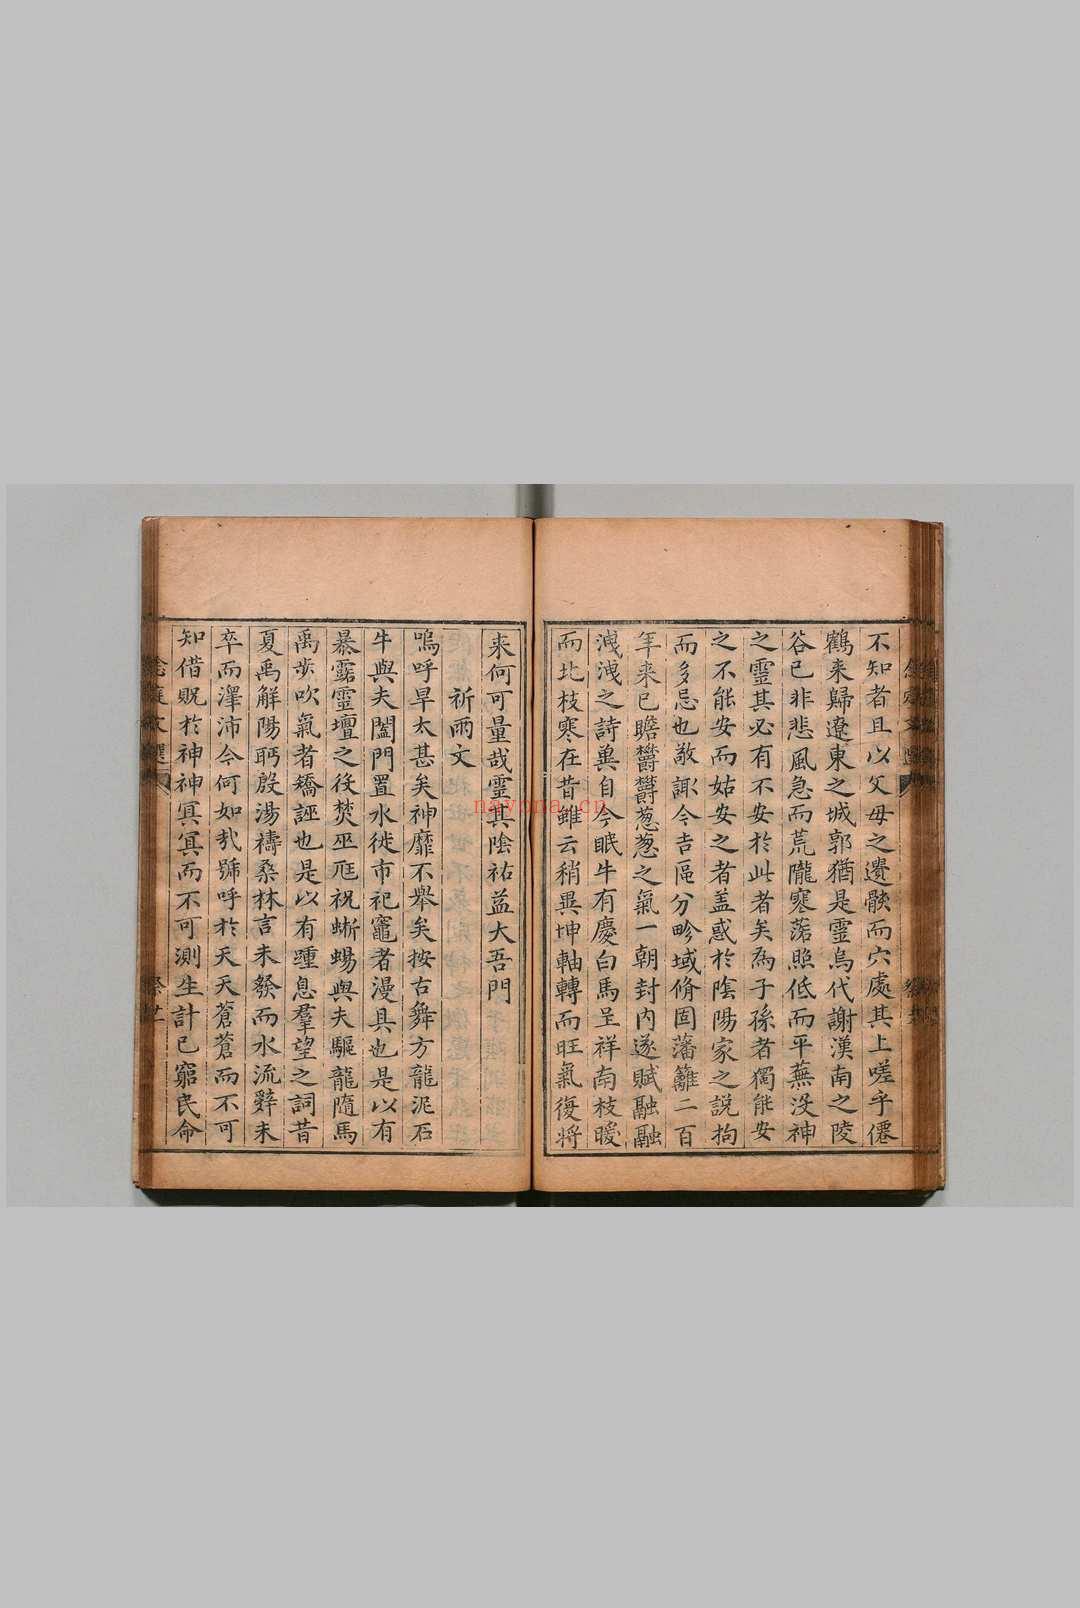 不知者且以父母之遺骸而穴處其上嗟乎僊
鶴来歸遼東之城郭猶是靈烏代謝漢南之陵
谷已非悲風急而荒隴寒落照低而平蕪没神
之靈其必有不安於此者矣爲子孫者獨能安
之不能安而姑安之者盖惑於陰陽家之説拘
而多忌也敬諏今吉區分畛域脩固藩籬二百
年来已瞻欝欝葱葱之氣一朝封内遂賦融融
洩洩之詩兾自今眠牛有慶白馬呈祥南枝暖
而北枝寒在昔雖云稍異坤軸轉而旺氣復將
来何可量哉靈其陰祐益大吾門
祈雨文
嗚呼旱太甚矣神靡不舉矣按古舞方龍泥石
牛與夫闔門置水徙市祀竈者漫具也是以有
暴露靈壇之役焚巫尫祝蜥蜴與夫驅龍隋馬
禹步吹氣者矯誣也是以有踵息羣望之詞昔
夏禹解陽盱殷湯禱桑林言未發而水流辭未
卒而澤沛今何如哉號呼於天天蒼蒼而不可
知借貺於神神冥冥而不可測生計已窮民命
文選
祭廿
nayona.cn